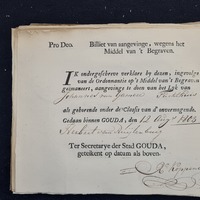 Pro Deo. Billiet van aangevinge, wegens het
Middel van 't Begraven.
IK ondergeschreve verklare by datum, ingevolge
van de Ordonnantie op 't Middel van 't Begraven
geëmaneert, aangevinge te doen van het Lyk van
Johannes van
als gehoorende onder de Classis van d'onvermogende.
Gedaan binnen GOUDA, den 12 Aug 1803
Ter Secretarye der Stad GOUDA,
geteikent op datum als boven.